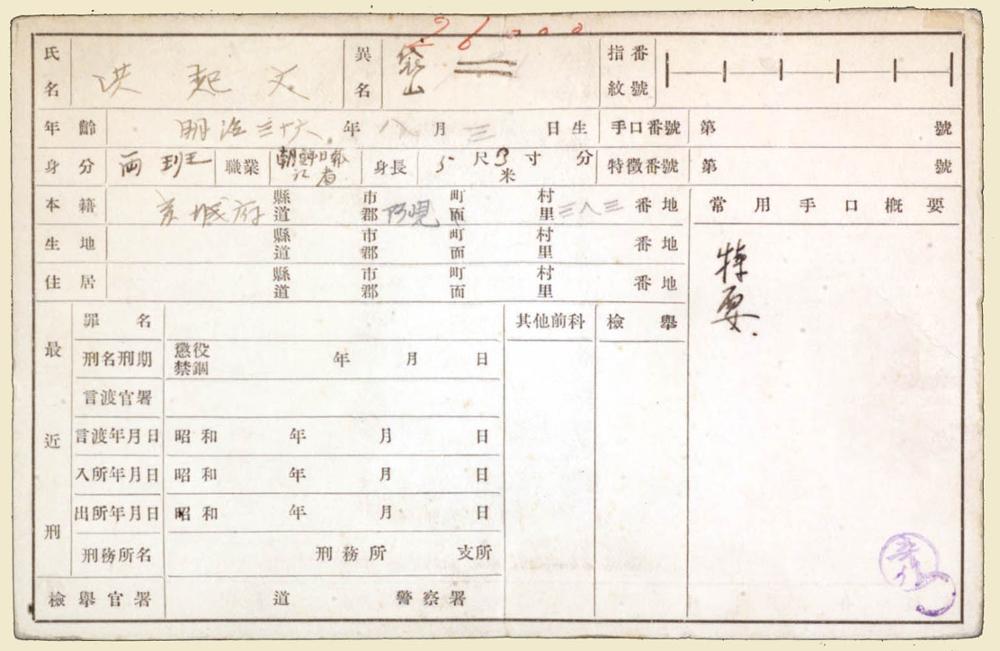 26000
氏名 洪起文 異名 袋山 指紋番號
年齡 明治三十六年八月三日生 手口番號 第 號
身分 両班 職業 朝鮮日報記者 身長 5尺3寸 分 米 特徵番號 第 號
本籍 京城府 縣道 市郡 阿峴 町面 村里 三八三 番地 常用手口槪要
生地 縣道 市郡 町面 村里 番地
住居 縣道 市郡 町面 村里 番地
特要.
最近刑
罪名 其他前科 檢擧
刑名刑期 懲役禁錮 年 月 日
言渡官署
言渡年月日 昭和 年 月 日
入所年月日 昭和 年 月 日
出所年月日 昭和 年 月 日
刑務所名 刑務所 支所
檢擧官署 道 警察署